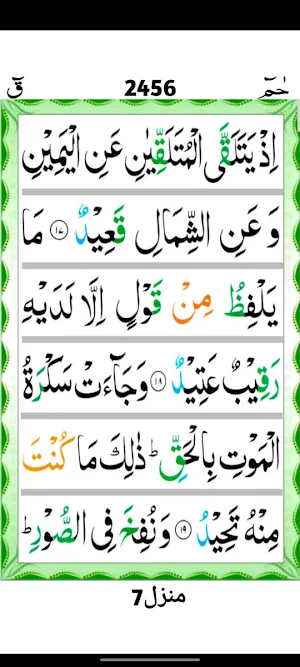 قٓ 2456 حٰمٓ
اِذْ يَتَلَقَّى الْمُتَلَقِّيٰنِ عَنِ الْيَمِيْنِ
وَ عَنِ الشِّمَالِ قَعِيْدٌ ۝۱۷ مَا
يَلْفِظُ مِنْ قَوْلٍ اِلَّا لَدَيْهِ
رَقِيْبٌ عَتِيْدٌ ۝۱۸ وَ جَآءَتْ سَكْرَةُ
الْمَوْتِ بِالْحَقِّ ؕ ذٰلِكَ مَا كُنْتَ
مِنْهُ تَحِيْدُ ۝۱۹ وَ نُفِخَ فِي الصُّوْرِ ؕ
منزل7